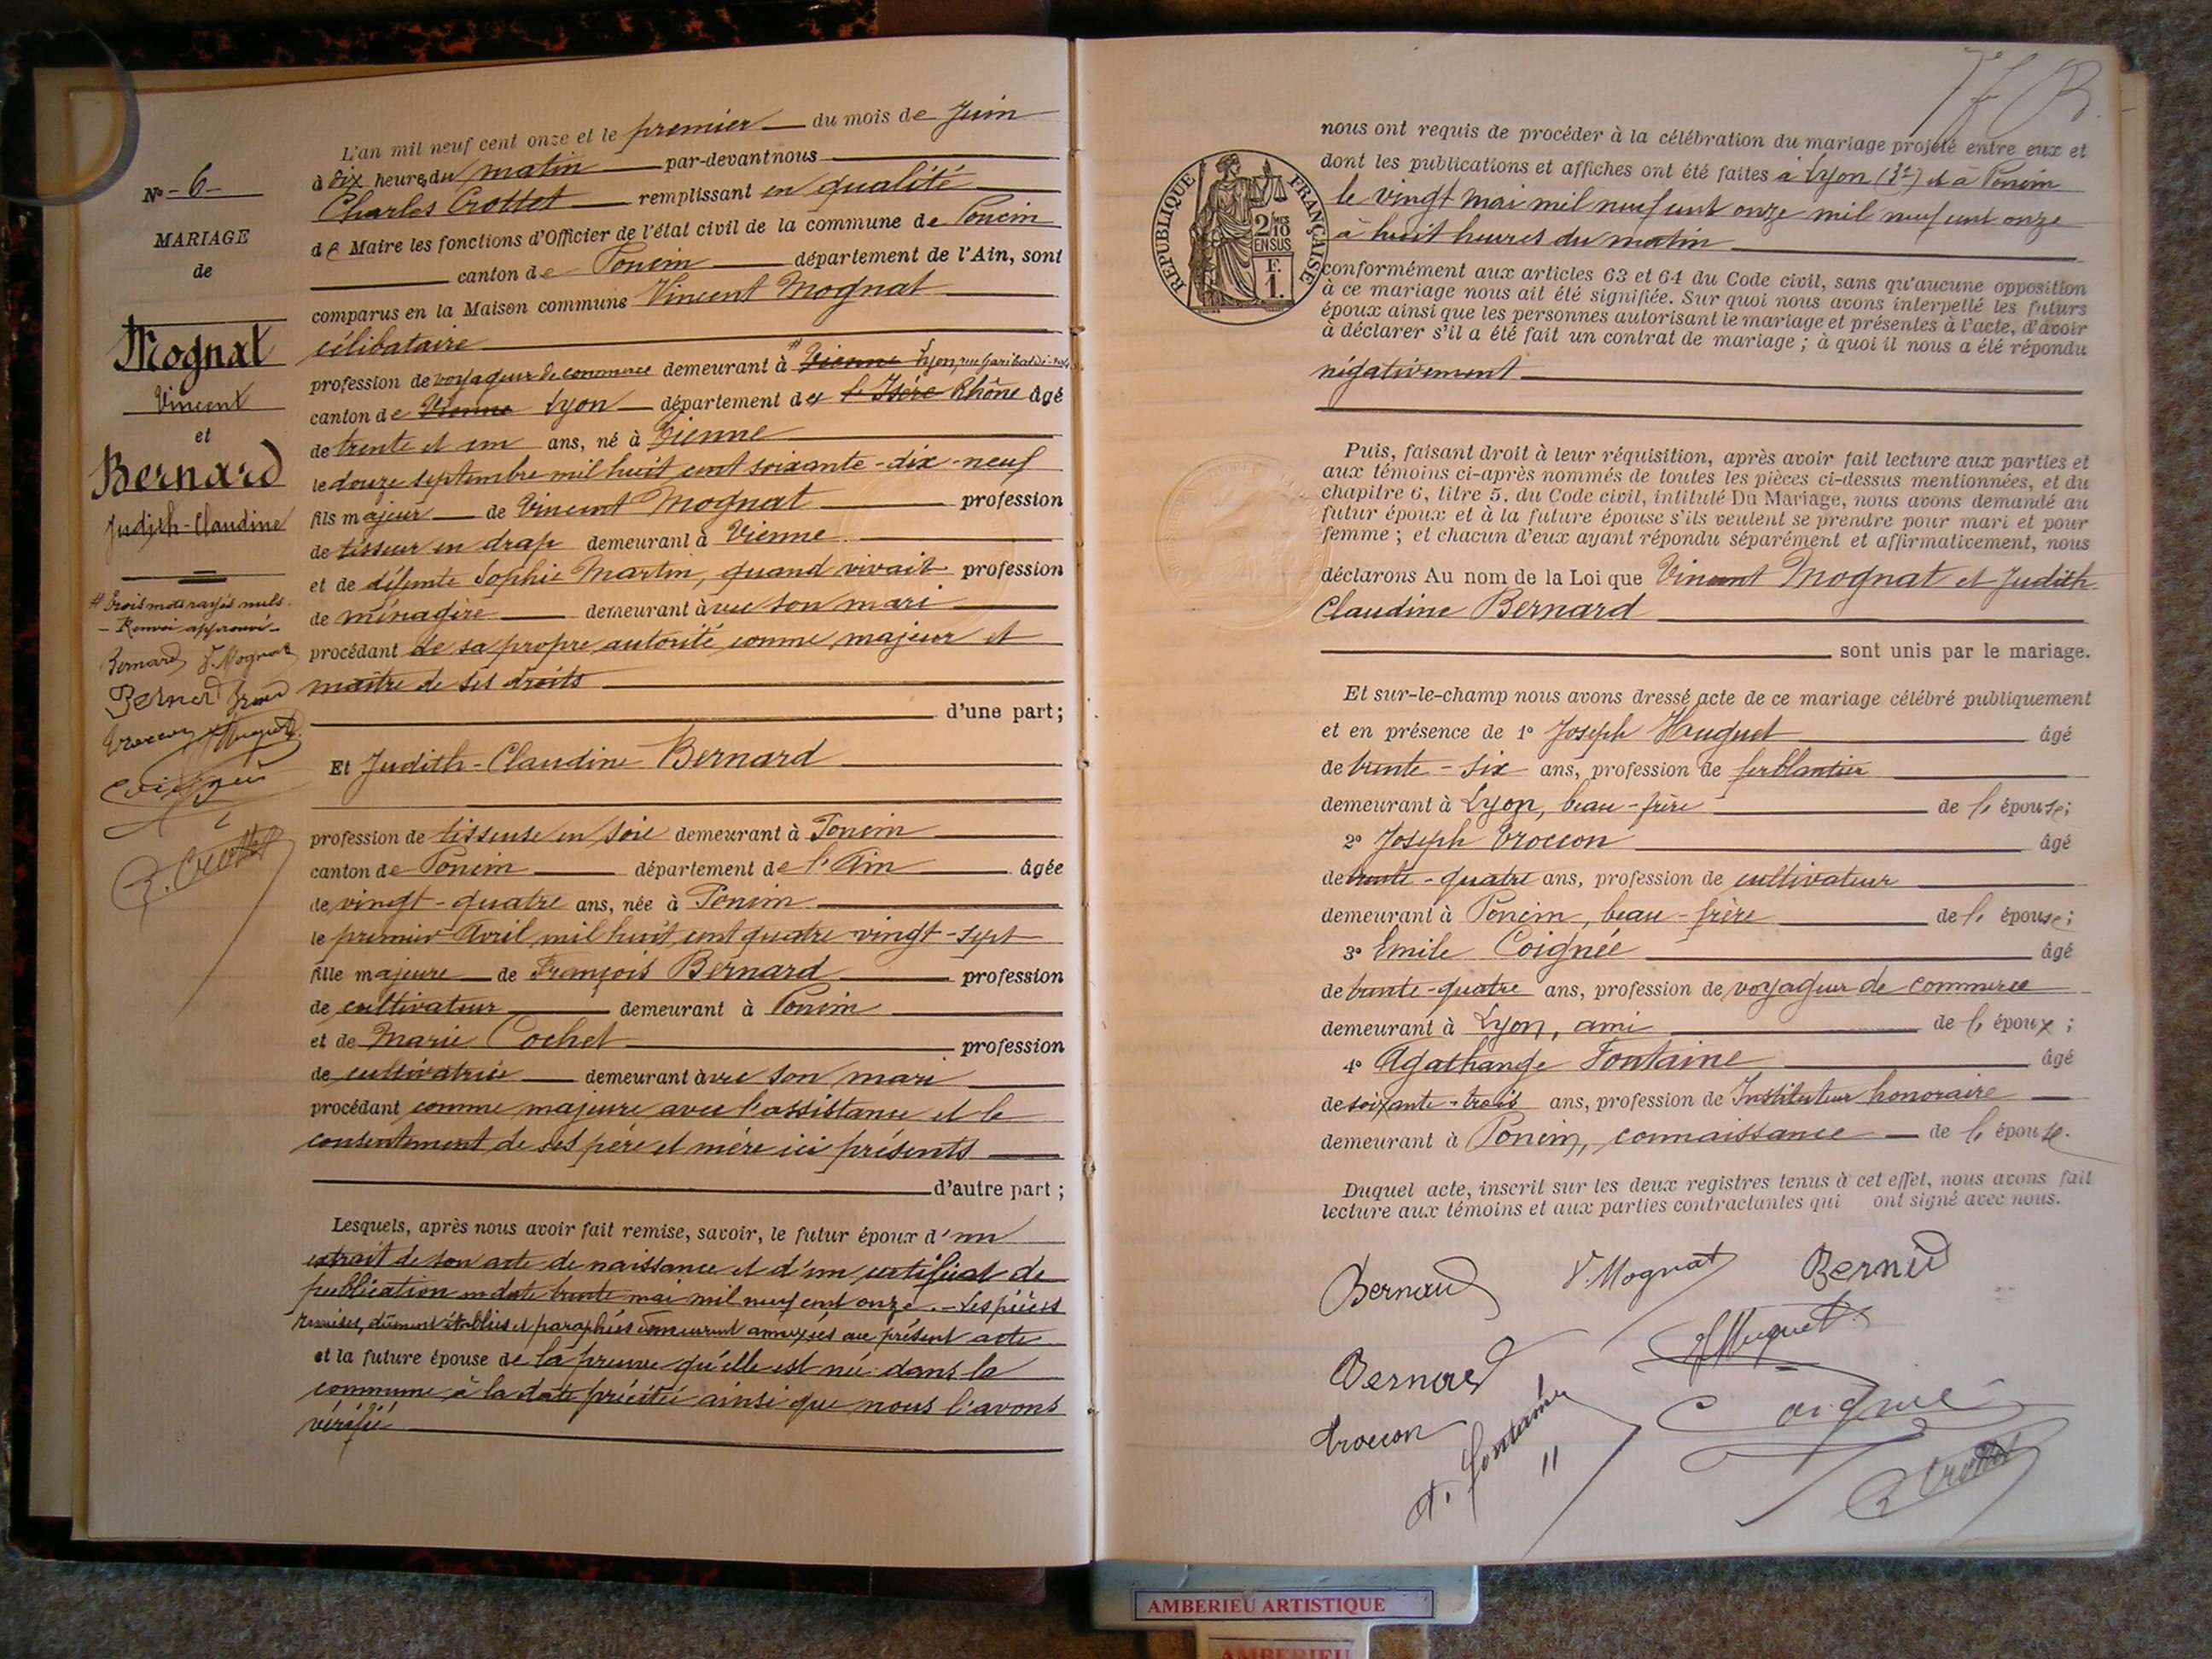 N° - 6 -
MARIAGE
de
Mognat
Vincent
et
Bernard
Judith-Claudine
# Trois mots rayés nuls.
- Renvoi approuvé -
Bernard V. Mognat
Bernard
Troccon Huguet
Coignée
C. Crottet
L'an mil neuf cent onze et le premier du mois de Juin
à dix heures du matin par-devant nous
Charles Crottet remplissant en qualité
de Maire les fonctions d'Officier de l'état civil de la commune de Poncin
canton de Poncin département de l'Ain, sont
comparus en la Maison commune Vincent Mognat
célibataire
profession de voyageur de commerce demeurant à # Vienne Lyon, rue Garibaldi
canton de Vienne Lyon département de l'Isère Rhône âgé
de trente et un ans, né à Vienne
le douze septembre mil huit cent soixante-dix-neuf
fils majeur de Vincent Mognat profession
de tisseur en drap demeurant à Vienne
et de défunte Sophie Martin, quand vivait profession
de ménagère demeurant avec son mari
procédant de sa propre autorité comme majeur et
maître de ses droits
d'une part;
Et Judith-Claudine Bernard
profession de tisseuse en soie demeurant à Poncin
canton de Poncin département de l'Ain âgée
de vingt-quatre ans, née à Poncin
le premier Avril mil huit cent quatre vingt-sept
fille majeure de François Bernard profession
de cultivateur demeurant à Poncin
et de Marie Cochet profession
de cultivatrice demeurant avec son mari
procédant comme majeure avec l'assistance et le
consentement de ses père et mère ici présents
d'autre part;
Lesquels, après nous avoir fait remise, savoir, le futur époux d'un
extrait de son acte de naissance et d'un certificat de
publication en date trente mai mil neuf cent onze. - Les pièces
remises, dûment établies et paraphées demeurent annexées au présent acte
et la future épouse de la preuve qu'elle est née dans la
commune à la date précitée ainsi que nous l'avons
vérifié
RÉPUBLIQUE FRANÇAISE
2/10 MES
EN SUS
F.
1.
nous ont requis de procéder à la célébration du mariage projeté entre eux et
dont les publications et affiches ont été faites à Lyon (3e) et à Poncin
le vingt mai mil neuf cent onze mil neuf cent onze
à huit heures du matin
conformément aux articles 63 et 64 du Code civil, sans qu'aucune opposition
à ce mariage nous ait été signifiée. Sur quoi nous avons interpellé les futurs
époux ainsi que les personnes autorisant le mariage et présentes à l'acte, d'avoir
à déclarer s'il a été fait un contrat de mariage; à quoi il nous a été répondu
négativement
Puis, faisant droit à leur réquisition, après avoir fait lecture aux parties et
aux témoins ci-après nommés de toutes les pièces ci-dessus mentionnées, et du
chapitre 6, titre 5, du Code civil, intitulé Du Mariage, nous avons demandé au
futur époux et à la future épouse s'ils veulent se prendre pour mari et pour
femme; et chacun d'eux ayant répondu séparément et affirmativement, nous
déclarons Au nom de la Loi que Vincent Mognat et Judith-
Claudine Bernard
sont unis par le mariage.
Et sur-le-champ nous avons dressé acte de ce mariage célébré publiquement
et en présence de 1° Joseph Huguet âgé
de trente-six ans, profession de ferblantier
demeurant à Lyon, beau-frère de l'épouse;
2° Joseph Troccon âgé
de trente-quatre ans, profession de cultivateur
demeurant à Poncin, beau-frère de l'épouse;
3° Emile Coignée âgé
de trente-quatre ans, profession de voyageur de commerce
demeurant à Lyon, ami de l'époux;
4° Agathange Fontaine âgé
de soixante-trois ans, profession de Instituteur honoraire
demeurant à Poncin, connaissance de l'épouse.
Duquel acte, inscrit sur les deux registres tenus à cet effet, nous avons fait
lecture aux témoins et aux parties contractantes qui ont signé avec nous.
Bernard V. Mognat Bernard
Bernard Huguet
Troccon A. Fontaine Coignée
C. Crottet
AMBERIEU ARTISTIQUE
AMBERIEU